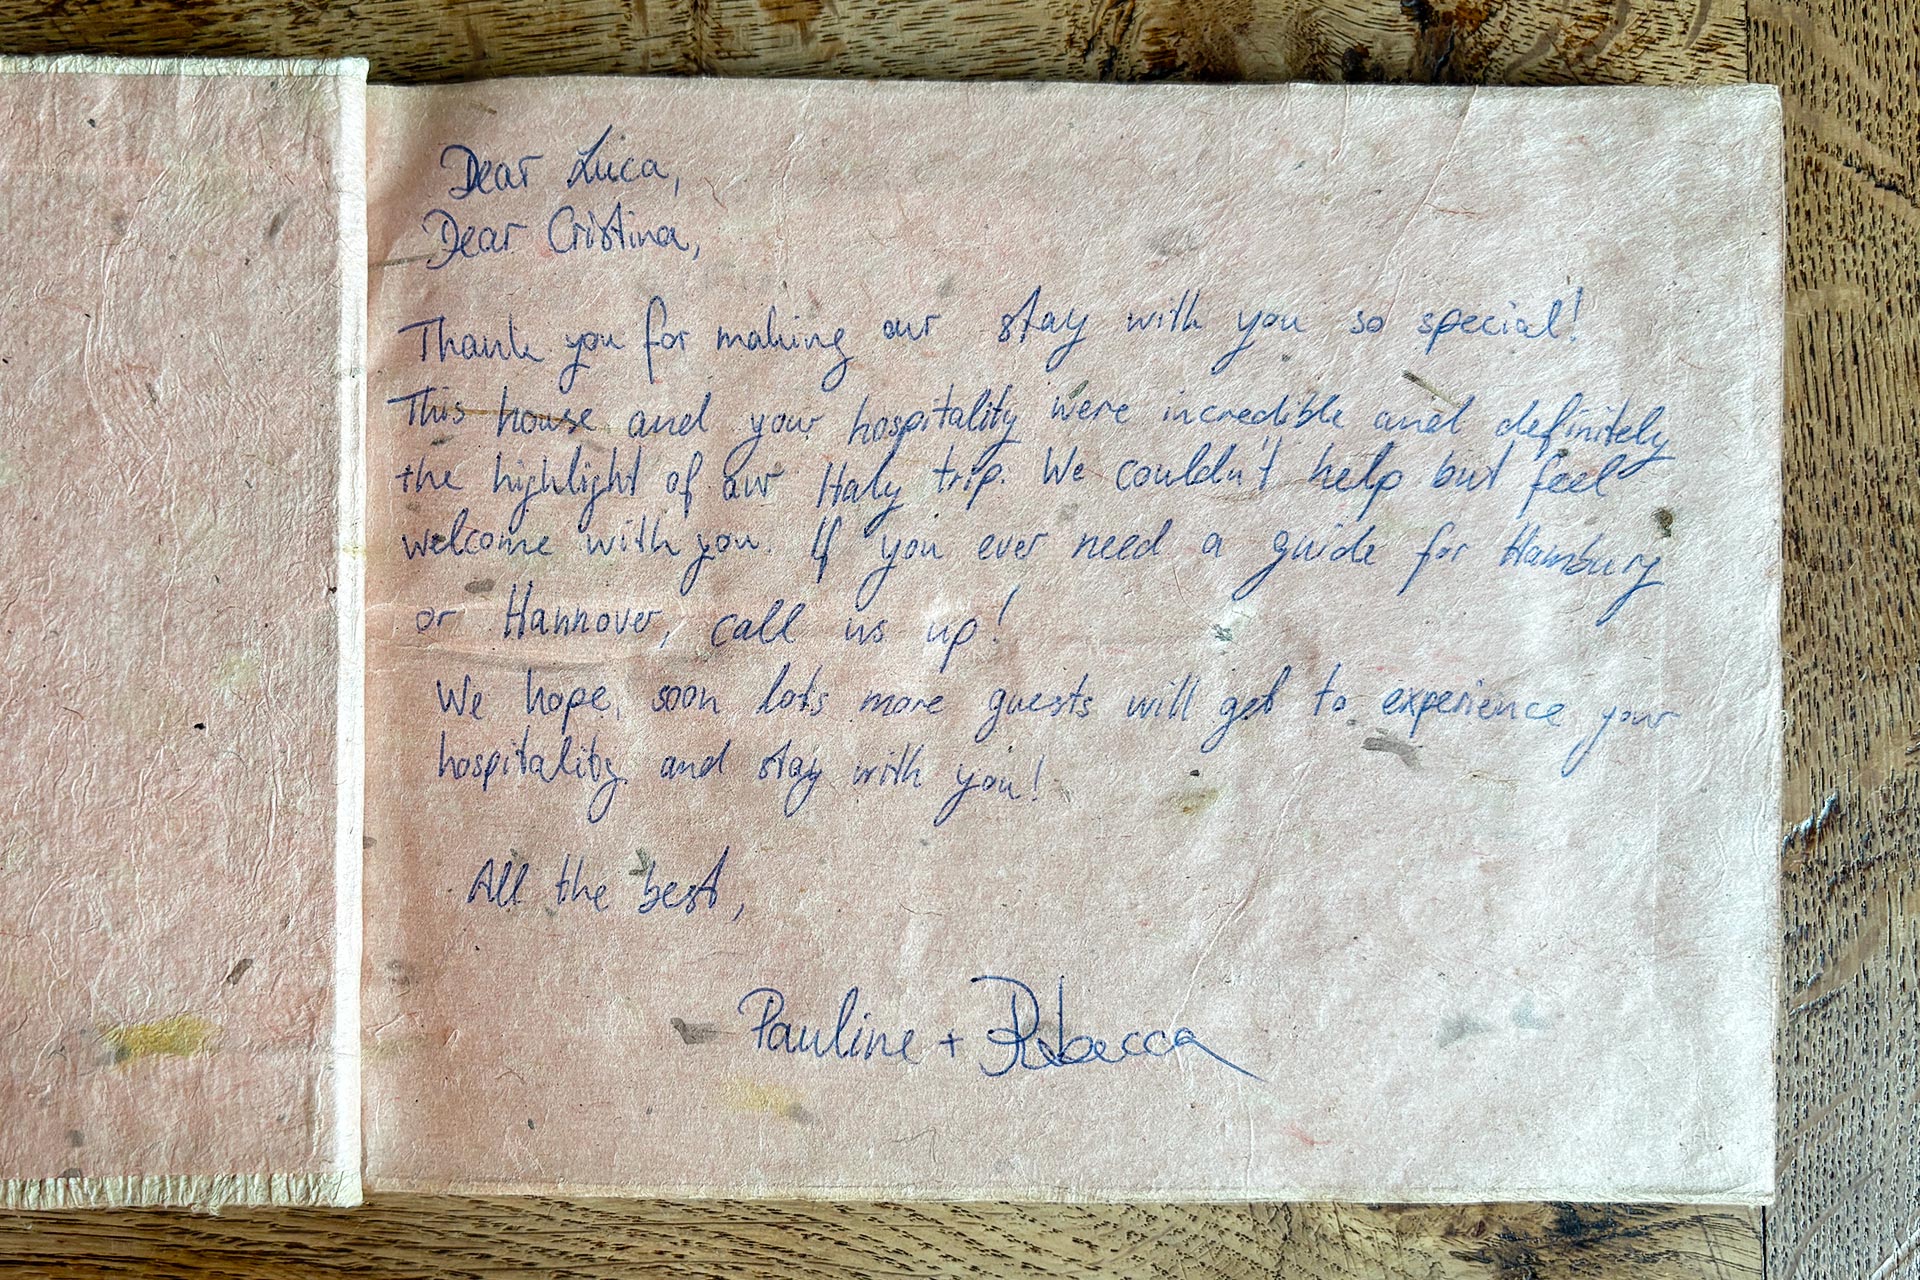 Dear Luca,
Dear Cristina,
Thank you for making our stay with you so special!
This house and your hospitality were incredible and definitely
the highlight of our Italy trip. We couldn't help but feel
welcome with you. If you ever need a guide for Hamburg
or Hannover, call us up!
We hope, soon lots more guests will get to experience your
hospitality and stay with you!
All the best,
Pauline + Rebecca